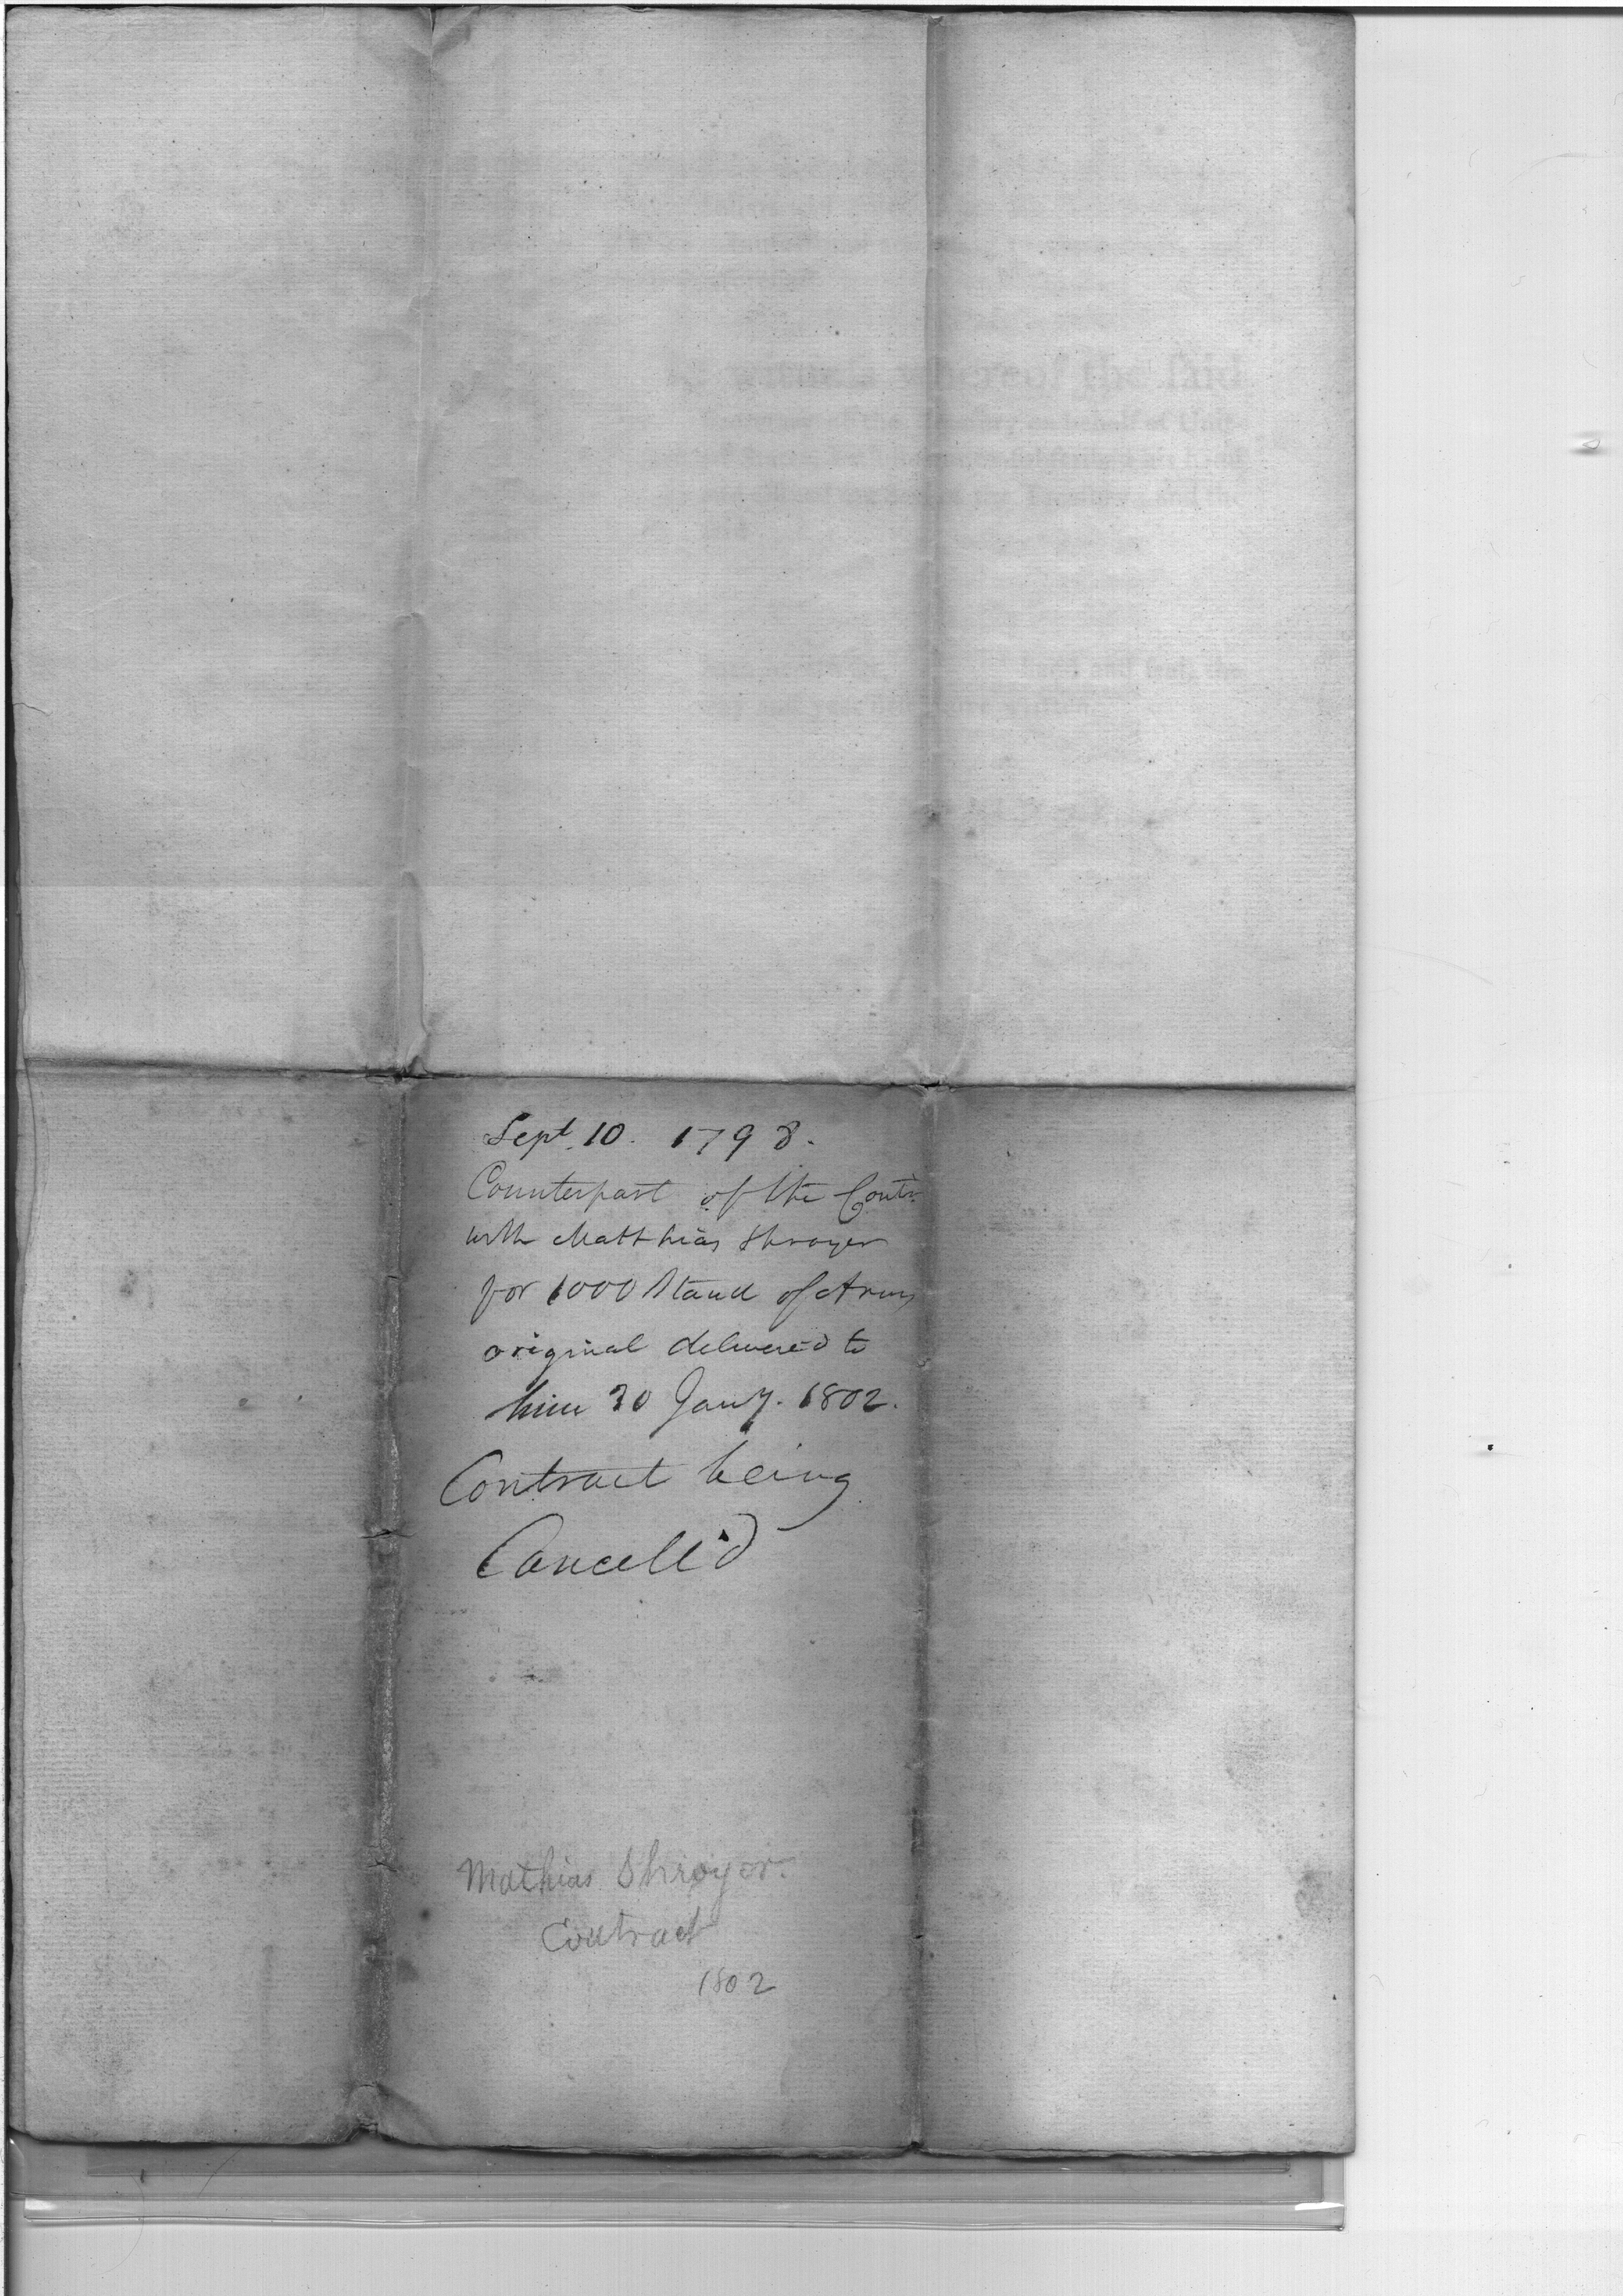 Sept. 10. 1798.
Counterpart of the Contr.
with Matthias Shroyer
for 1000 Stand of Arms
original delivered to
him 30 Jany. 1802.
Contract being
Cancell'd
Mathias Shroyer.
Contract
1802
whereof the said